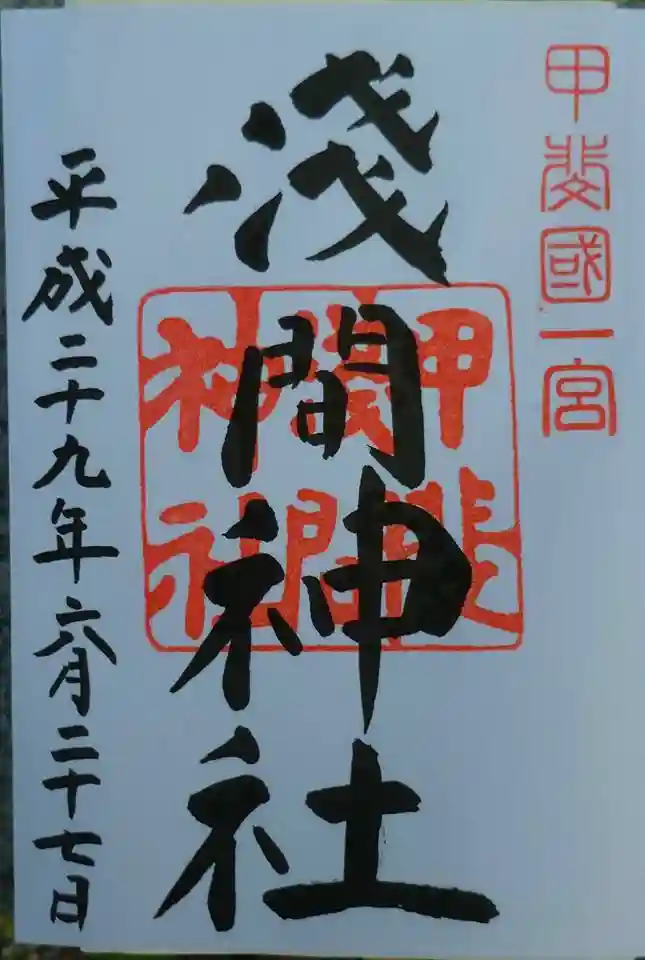 甲斐國一宮
淺間神社
甲斐
淺間
神社
平成二十九年六月二十七日